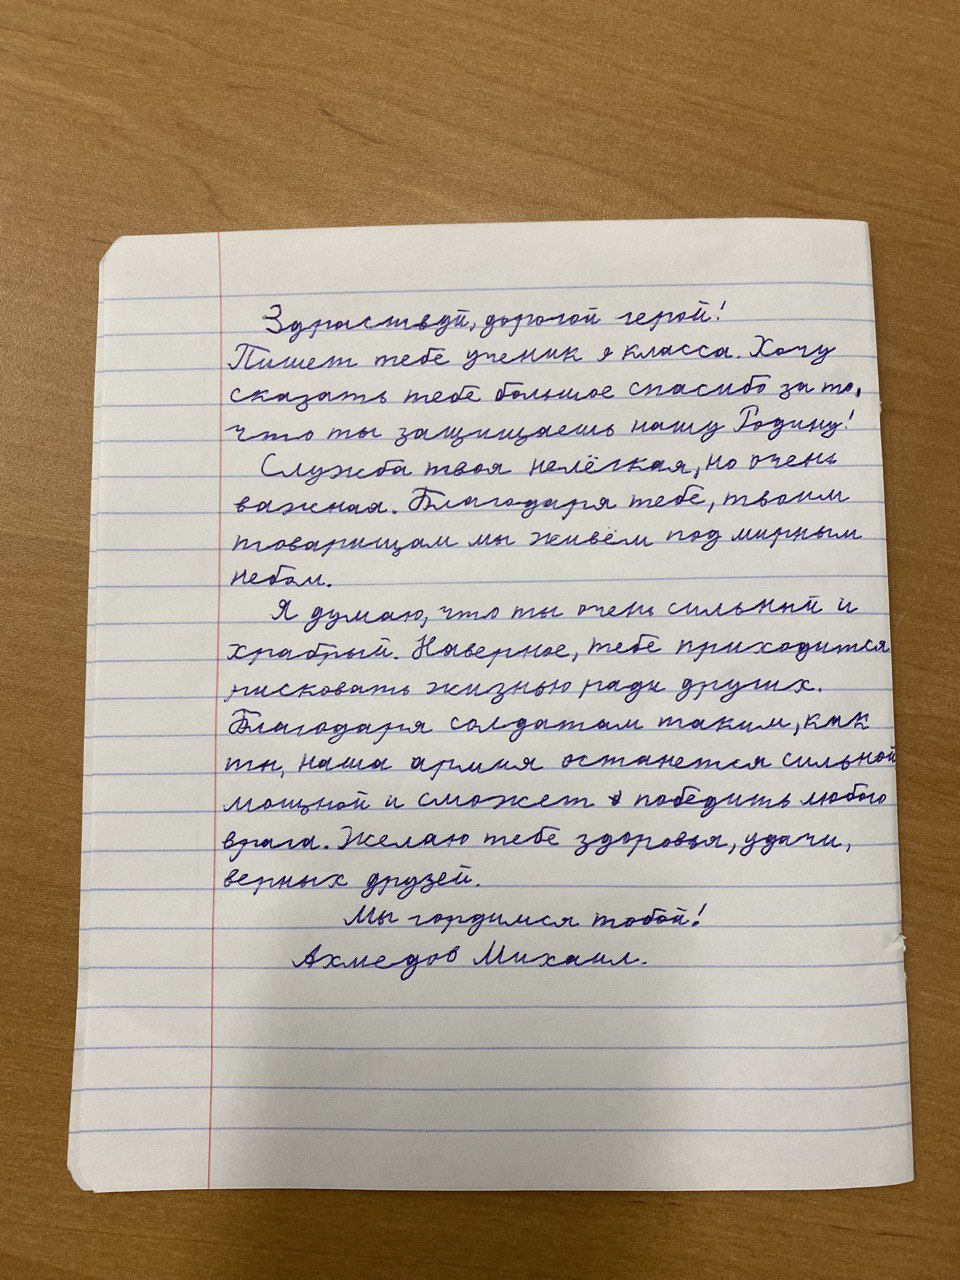 Здраствуй, дорогой герой!
Пишет тебе ученик я класса. Хочу
сказать тебе большое спасибо за то,
что ты защищаешь нашу Родину!
Служба твоя нелёгкая, но очень
важная. Благодаря тебе, твоим
товарищам мы живём под мирным
небом.
Я думаю, что ты очень сильный и
храбрый. Наверное, тебе приходится
рисковать жизнью ради других.
Благодаря солдатам таким, как
ты, наша армия останется сильной
мощной и сможет победить любого
врага. Желаю тебе здоровья, удачи,
верных друзей.
Мы гордимся тобой!
Ахмедов Михаил.